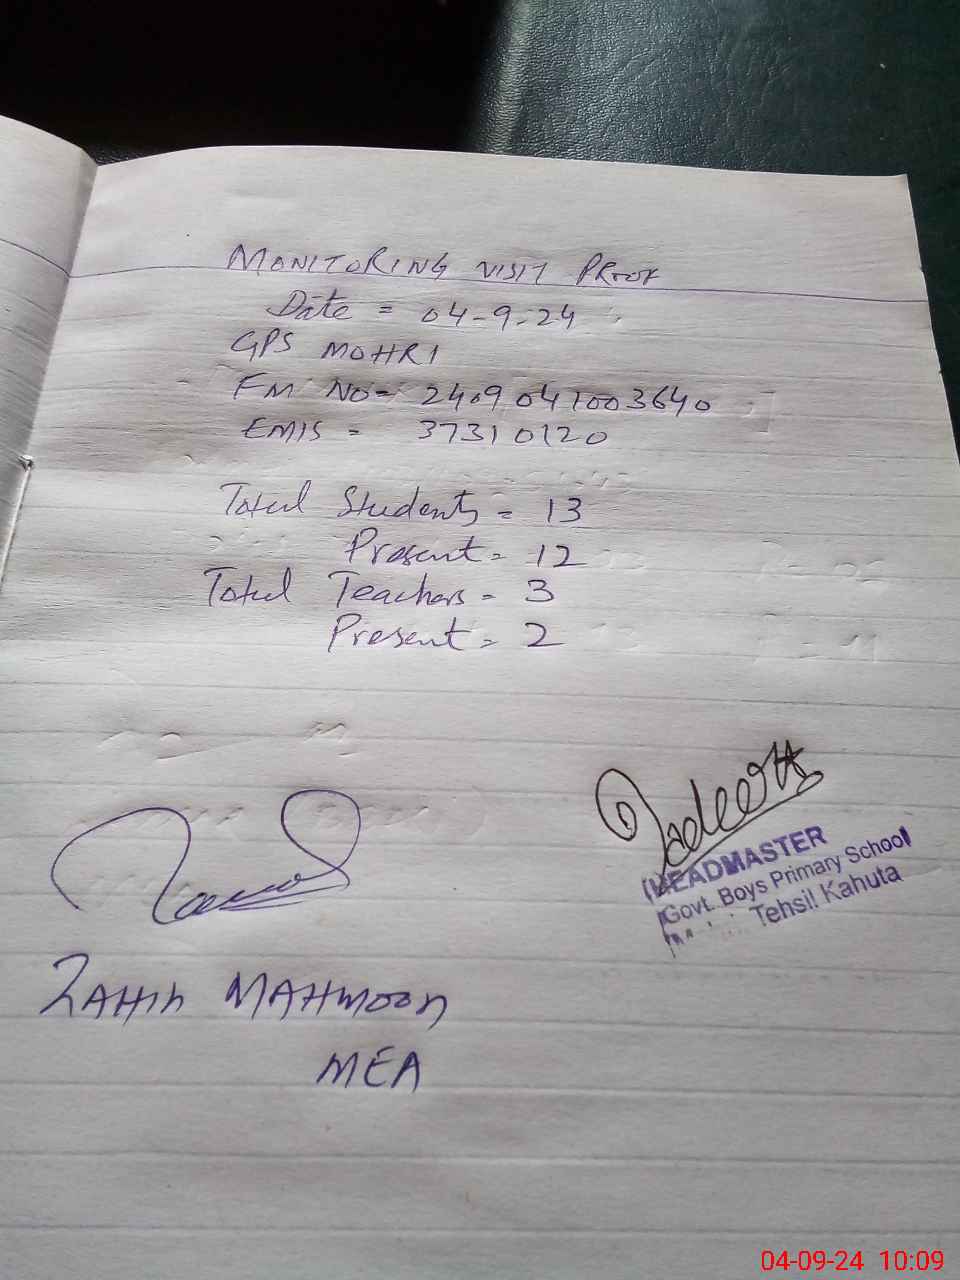 MONITORING VISIT PROOF
Date = 04-9-24
GPS MOHRI
FM NO= 2409041003640
EMIS = 37310120
Total Students = 13
Present = 12
Total Teachers = 3
Present = 2
HEADMASTER
Govt. Boys Primary School
Tehsil Kahuta
ZAHID MAHMOOD
MEA
04-09-24 10:09